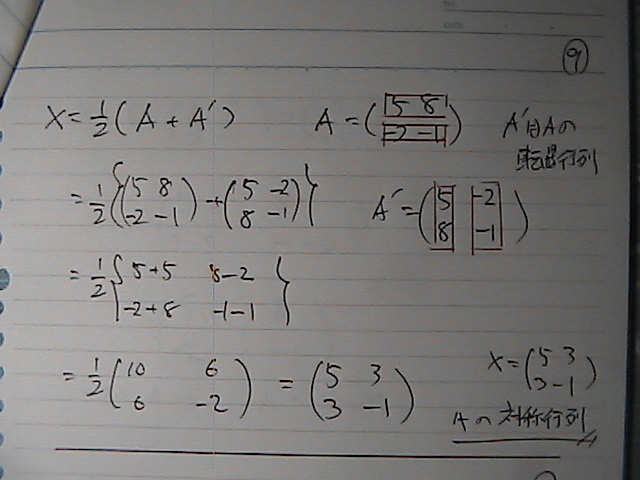 ⑨
X = 1/2 ( A + A' )
A = ( 5 8
-2 -1 )
A'はAの
転置行列
= 1/2 { ( 5 8
-2 -1 ) + ( 5 -2
8 -1 ) }
A' = ( 5 -2
8 -1 )
= 1/2 { 5+5 8-2
-2+8 -1-1 }
= 1/2 ( 10 6
6 -2 ) = ( 5 3
3 -1 )
X = ( 5 3
3 -1 )
Aの対称行列